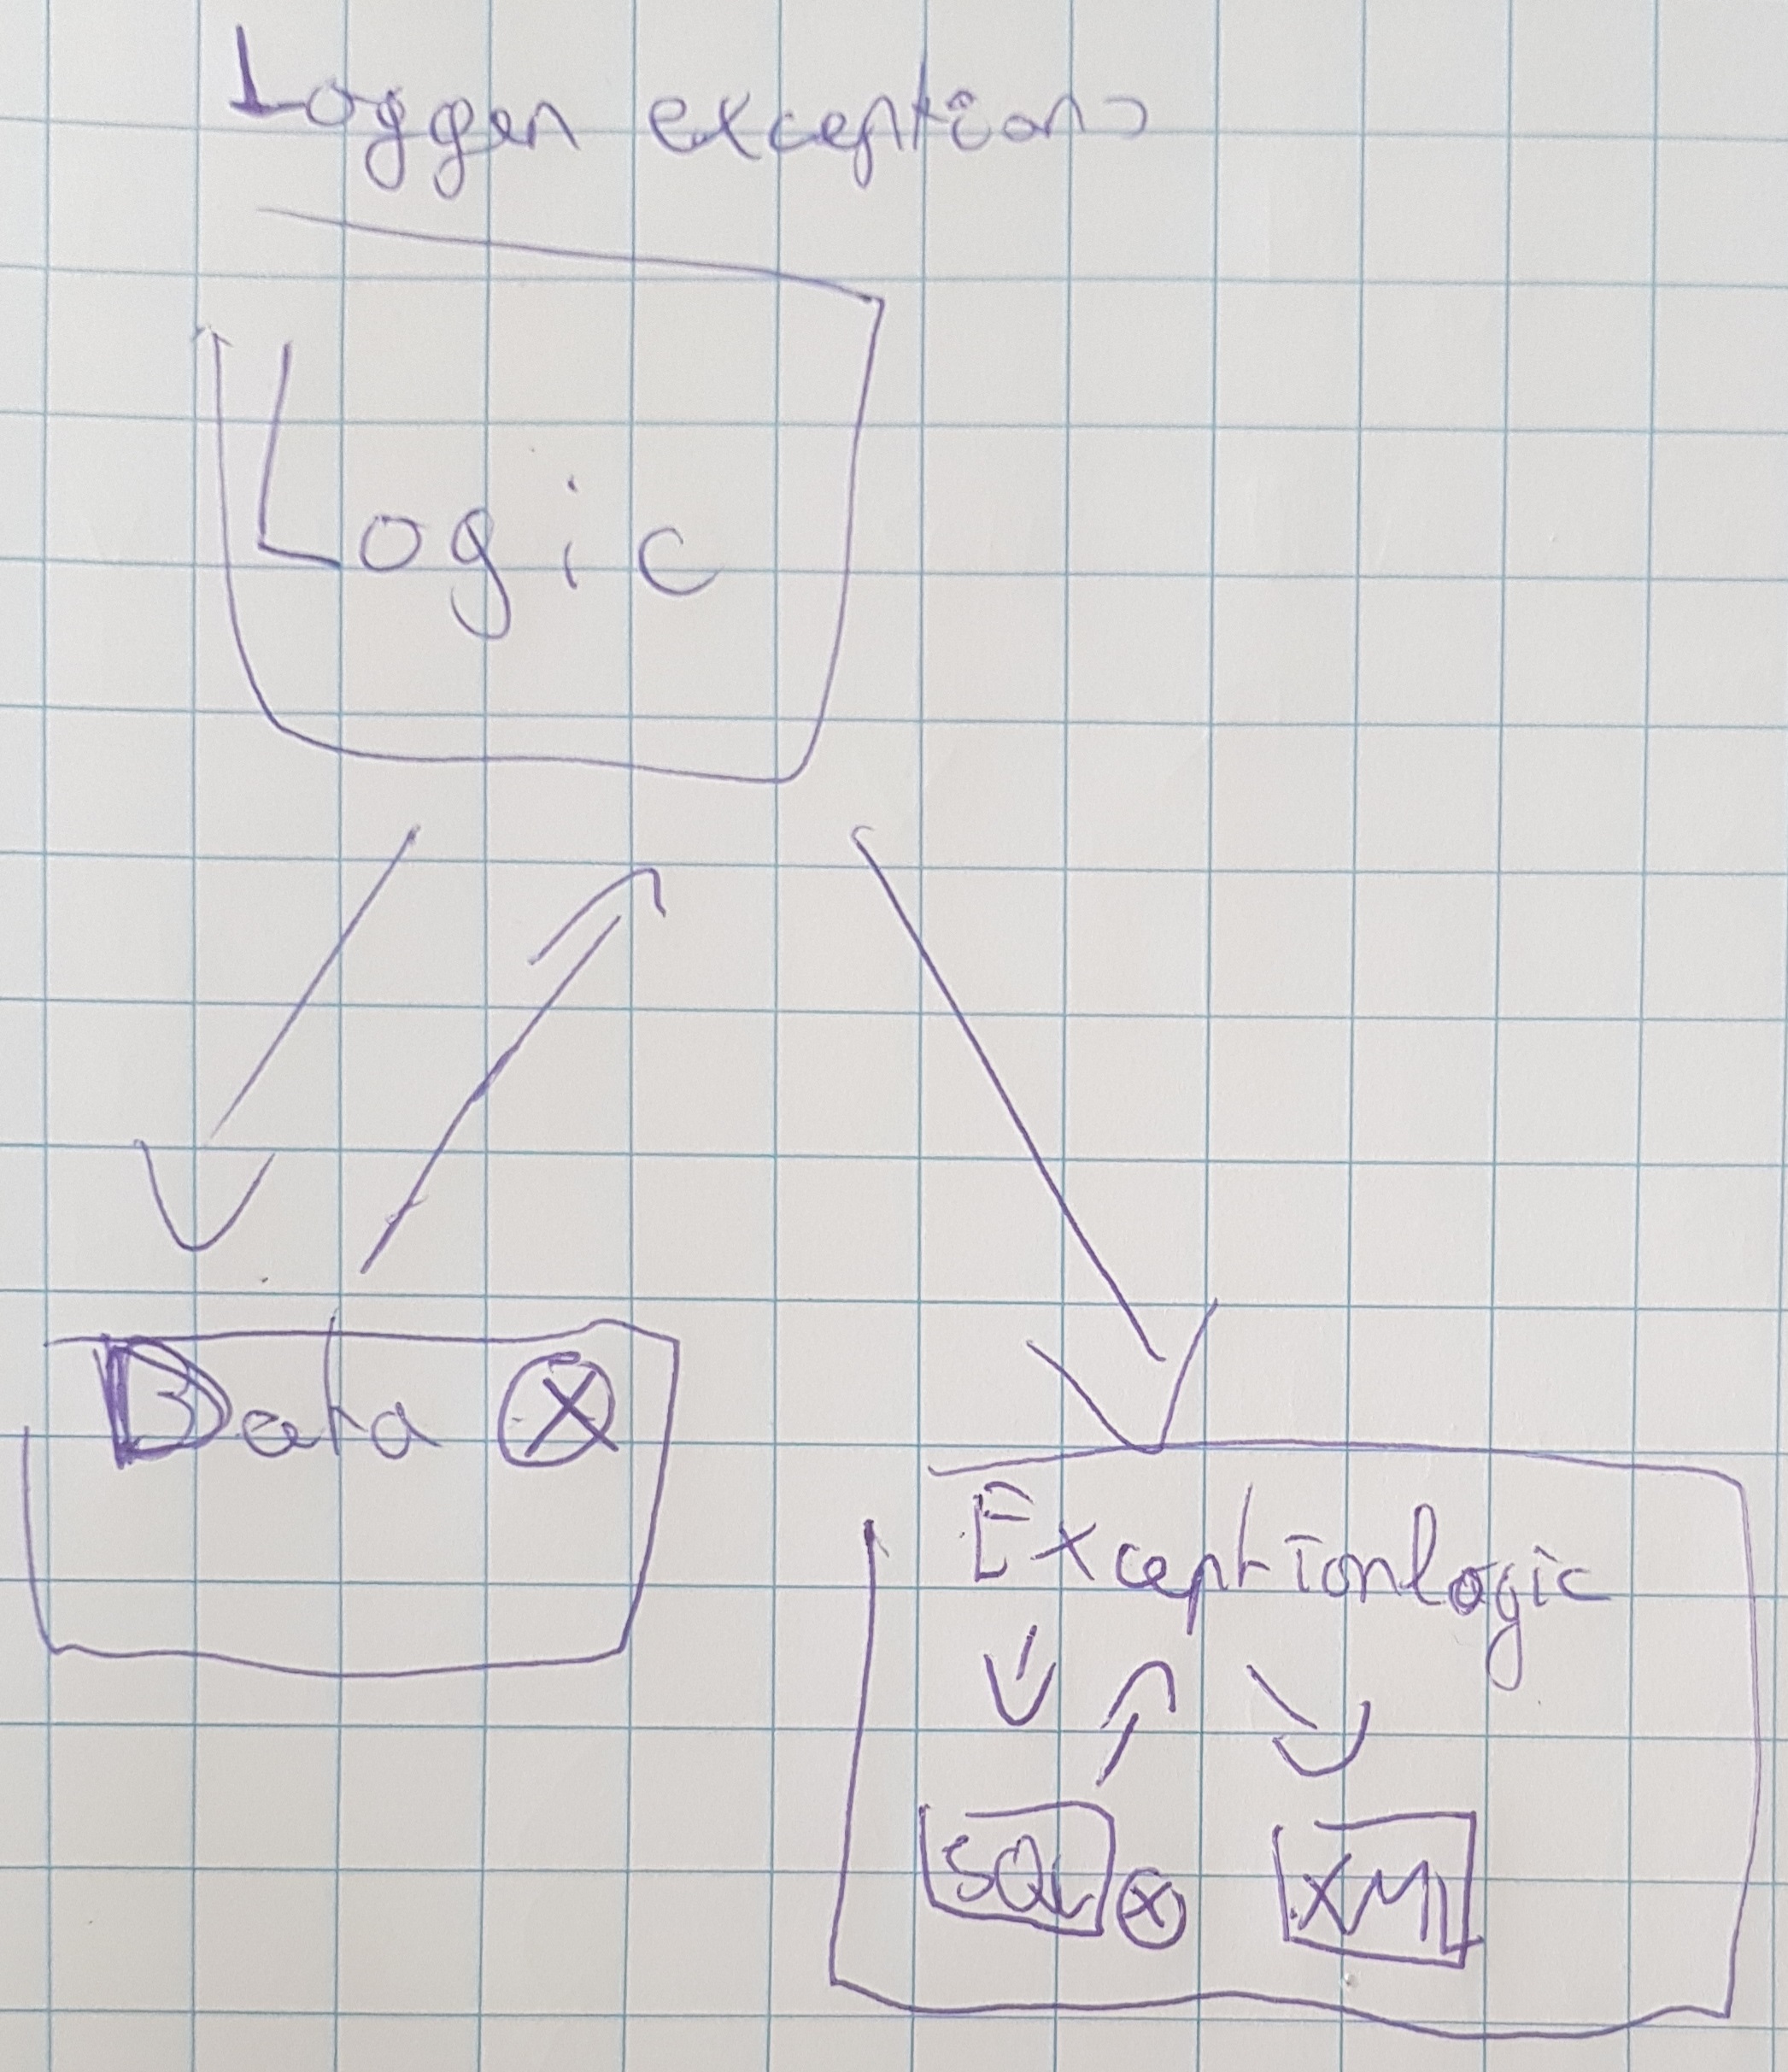 Loggen exceptions
Logic
Data
Exceptionlogic
SQL
XML